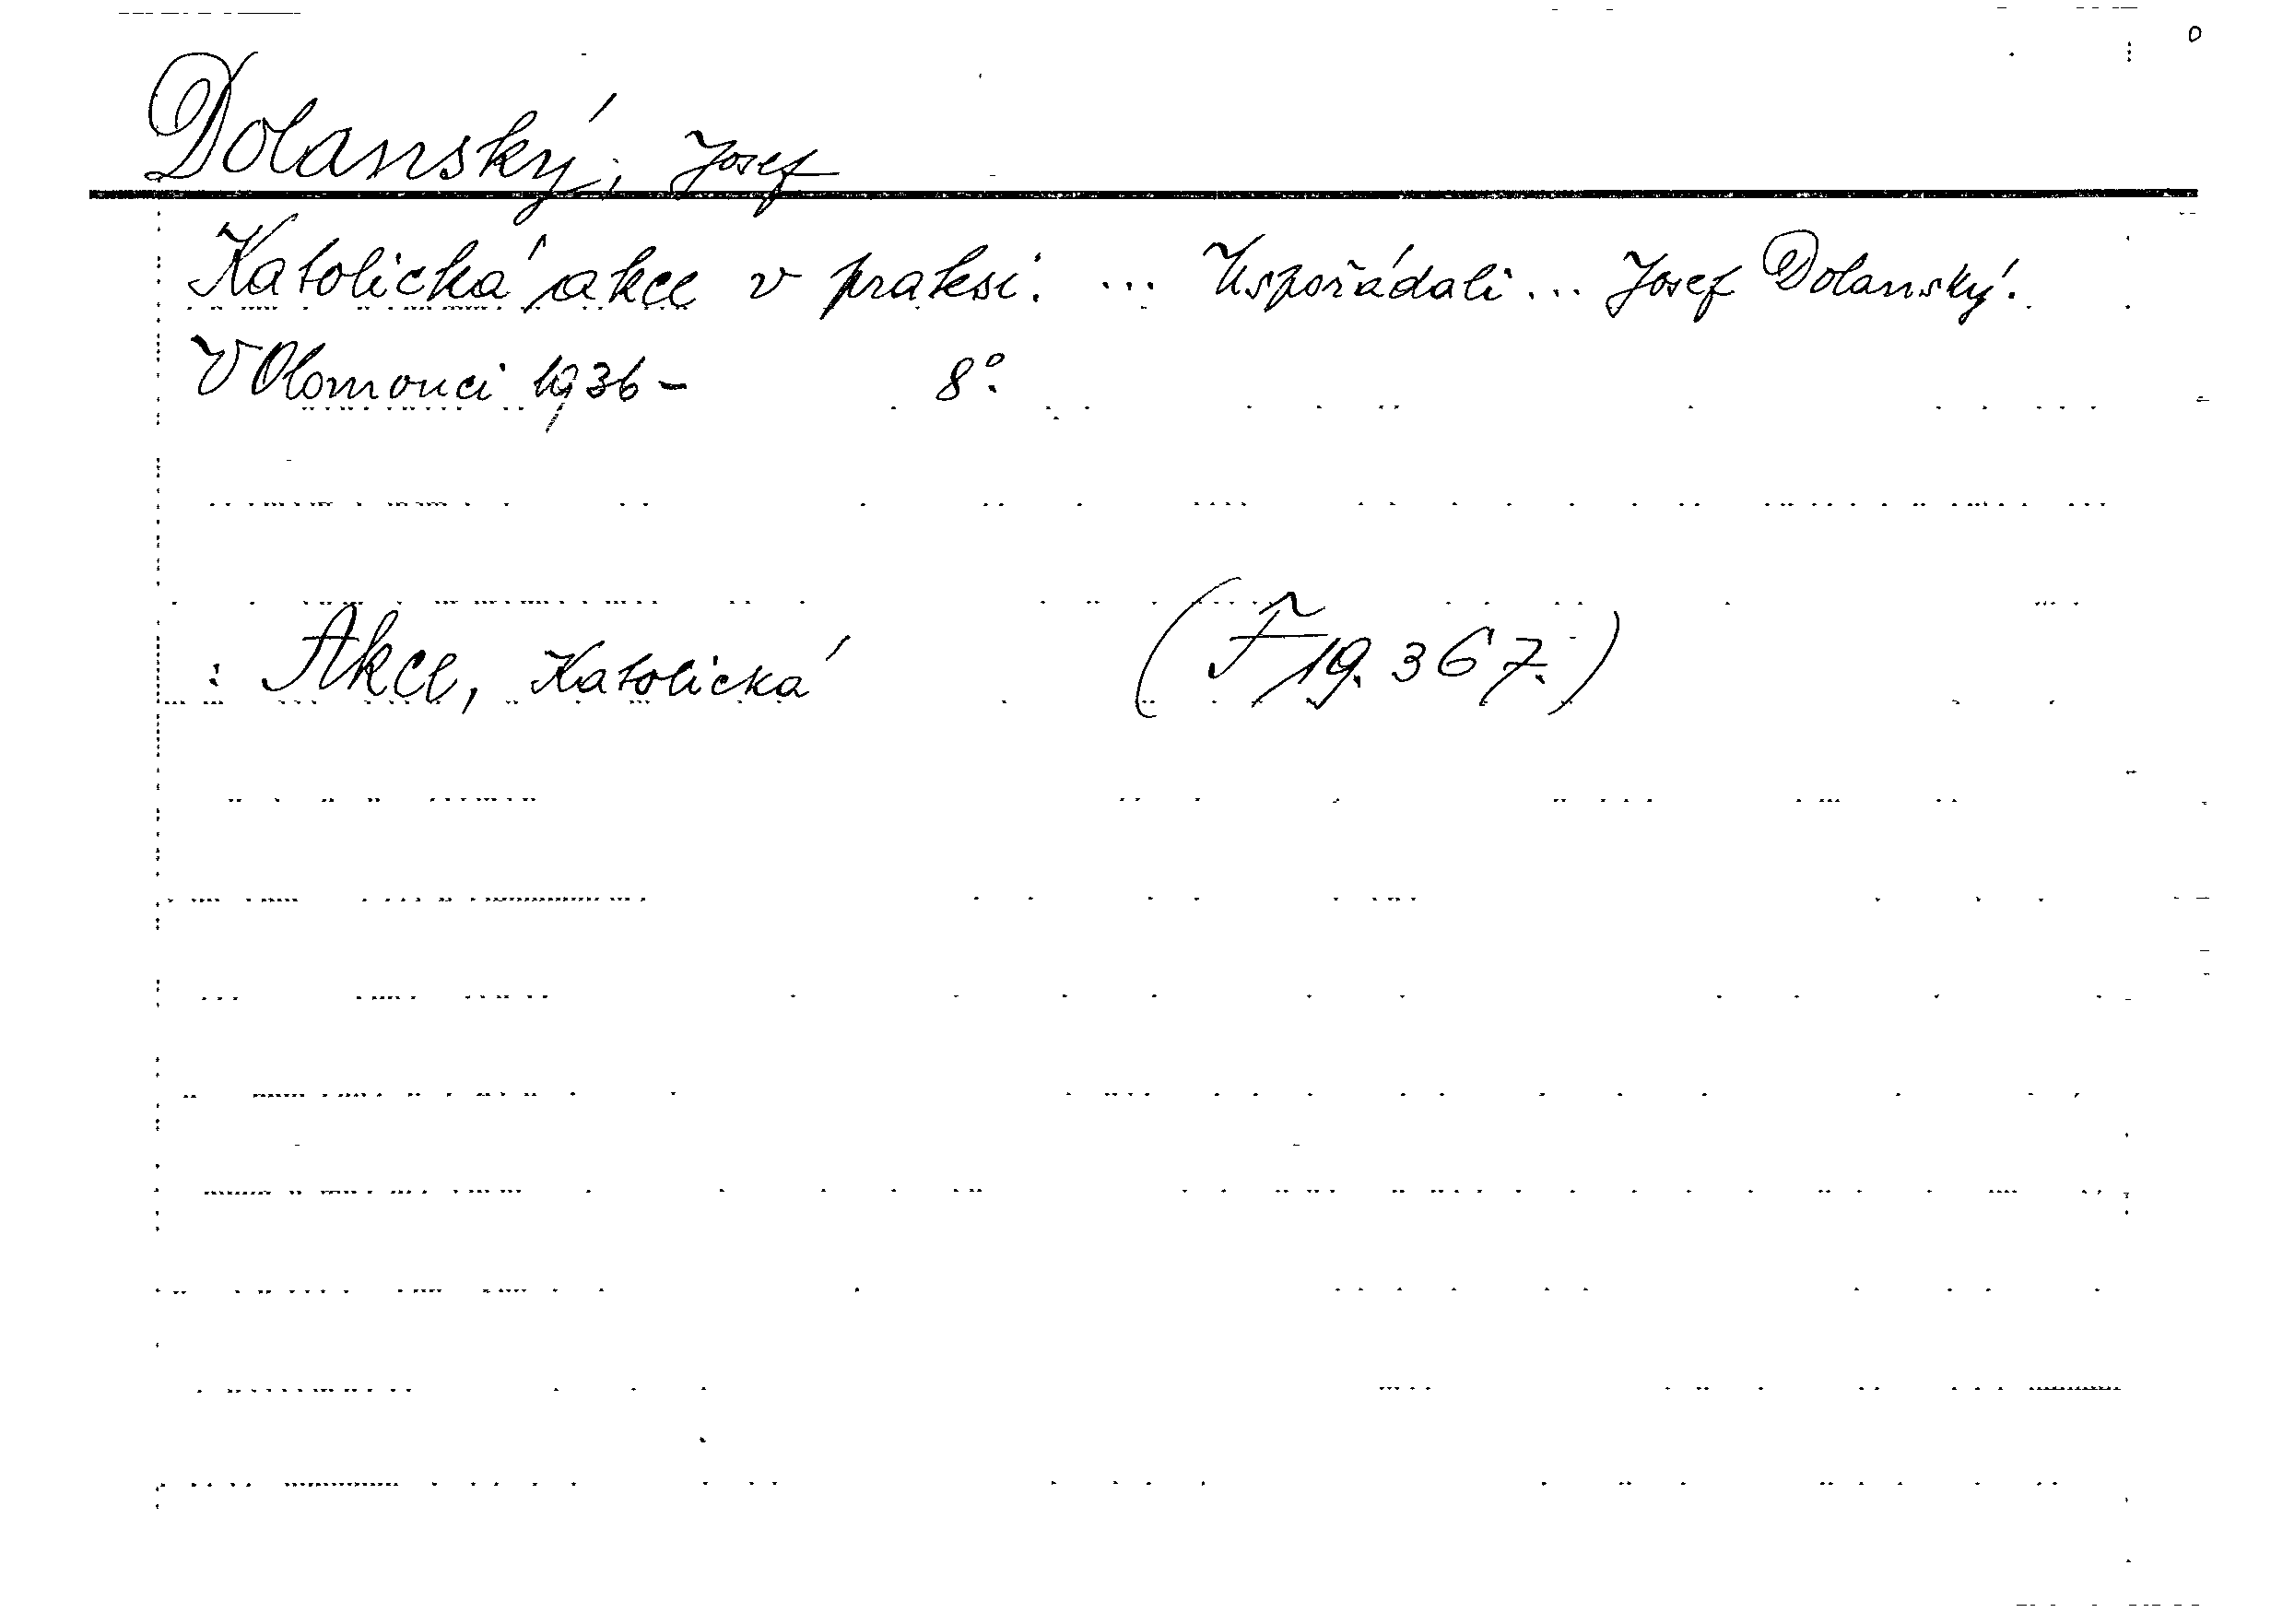 Dolanský, Josef
Katolická akce v praksi. ... Uspořádali... Josef Dolanský.
V Olomouci 1936- 8°.
: Akce, Katolická (F 19.367.)